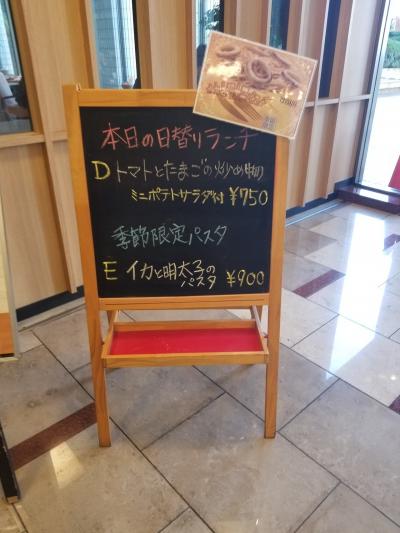 本日の日替りランチ
D トマトとたまごの炒め物
ミニポテトサラダ付 ¥750
季節限定パスタ
E イカと明太子の
パスタ ¥900